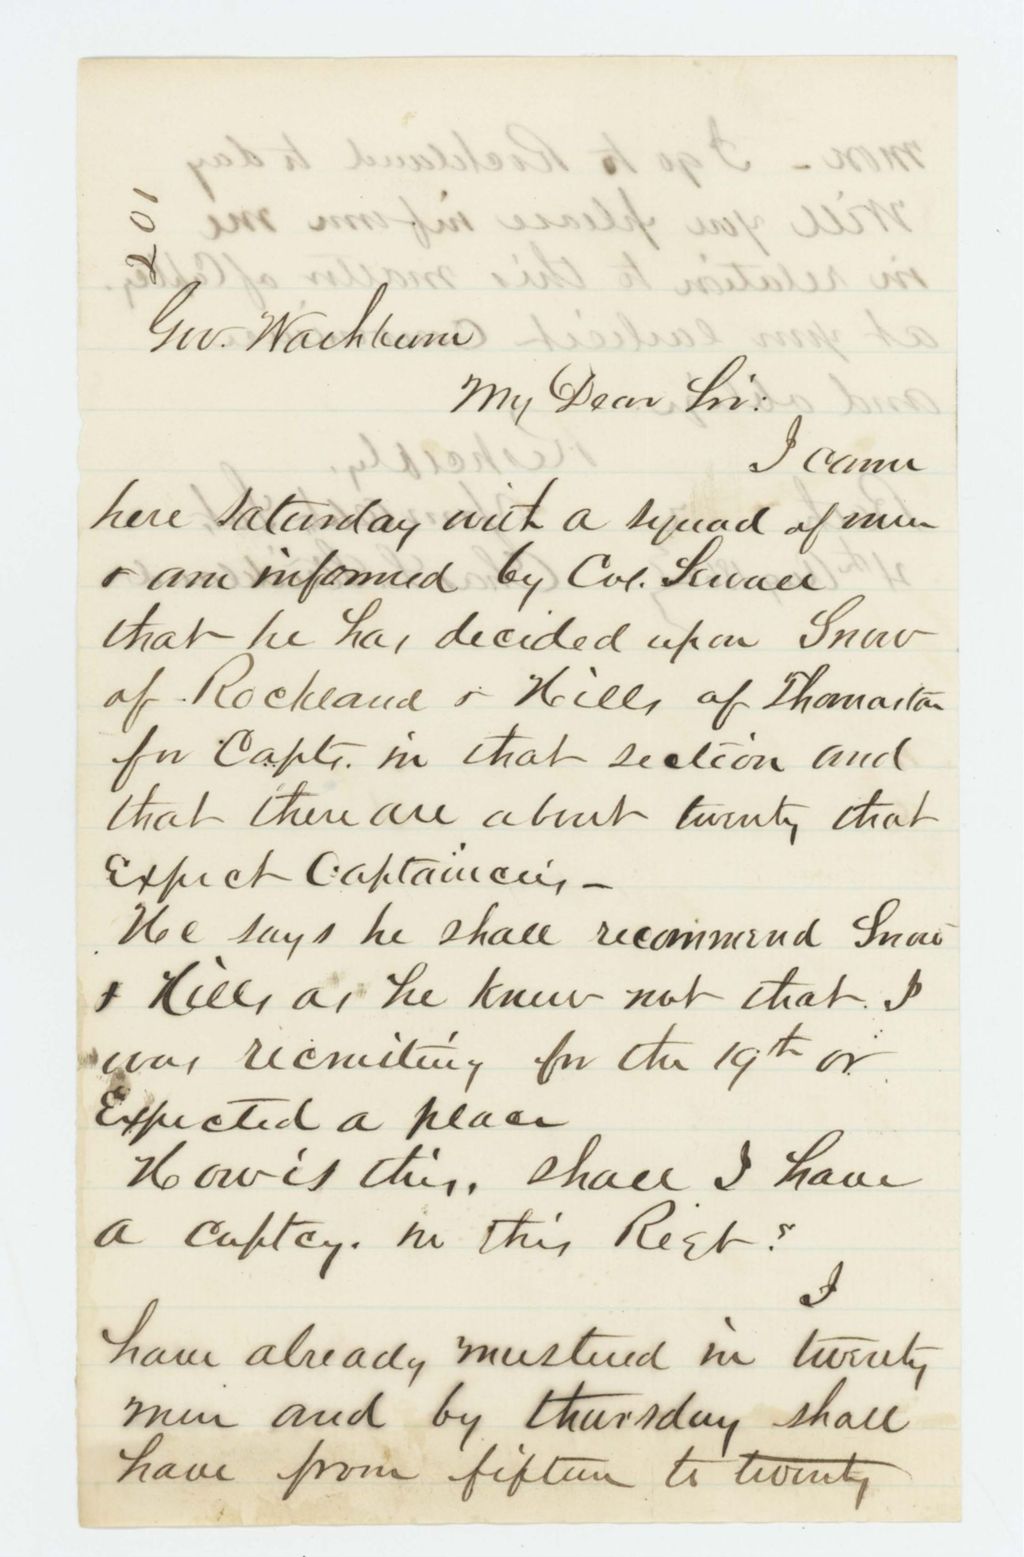 201
Gov. Washburn
My Dear Sir:
I came
here Saturday with a squad of men
& am informed by Col. Sewall
that he has decided upon Snow
of Rockland & Hills of Thomaston
for Capts. in that section and
that there are about twenty that
Expect Captaincies -
He says he shall recommend Snow
& Hills as he knew not that I
was recruiting for the 19th or
Expected a place
How is this, shall I have
a captcy. in this Regt?
I
have already mustered in twenty
men and by thursday shall
have from fifteen to twenty